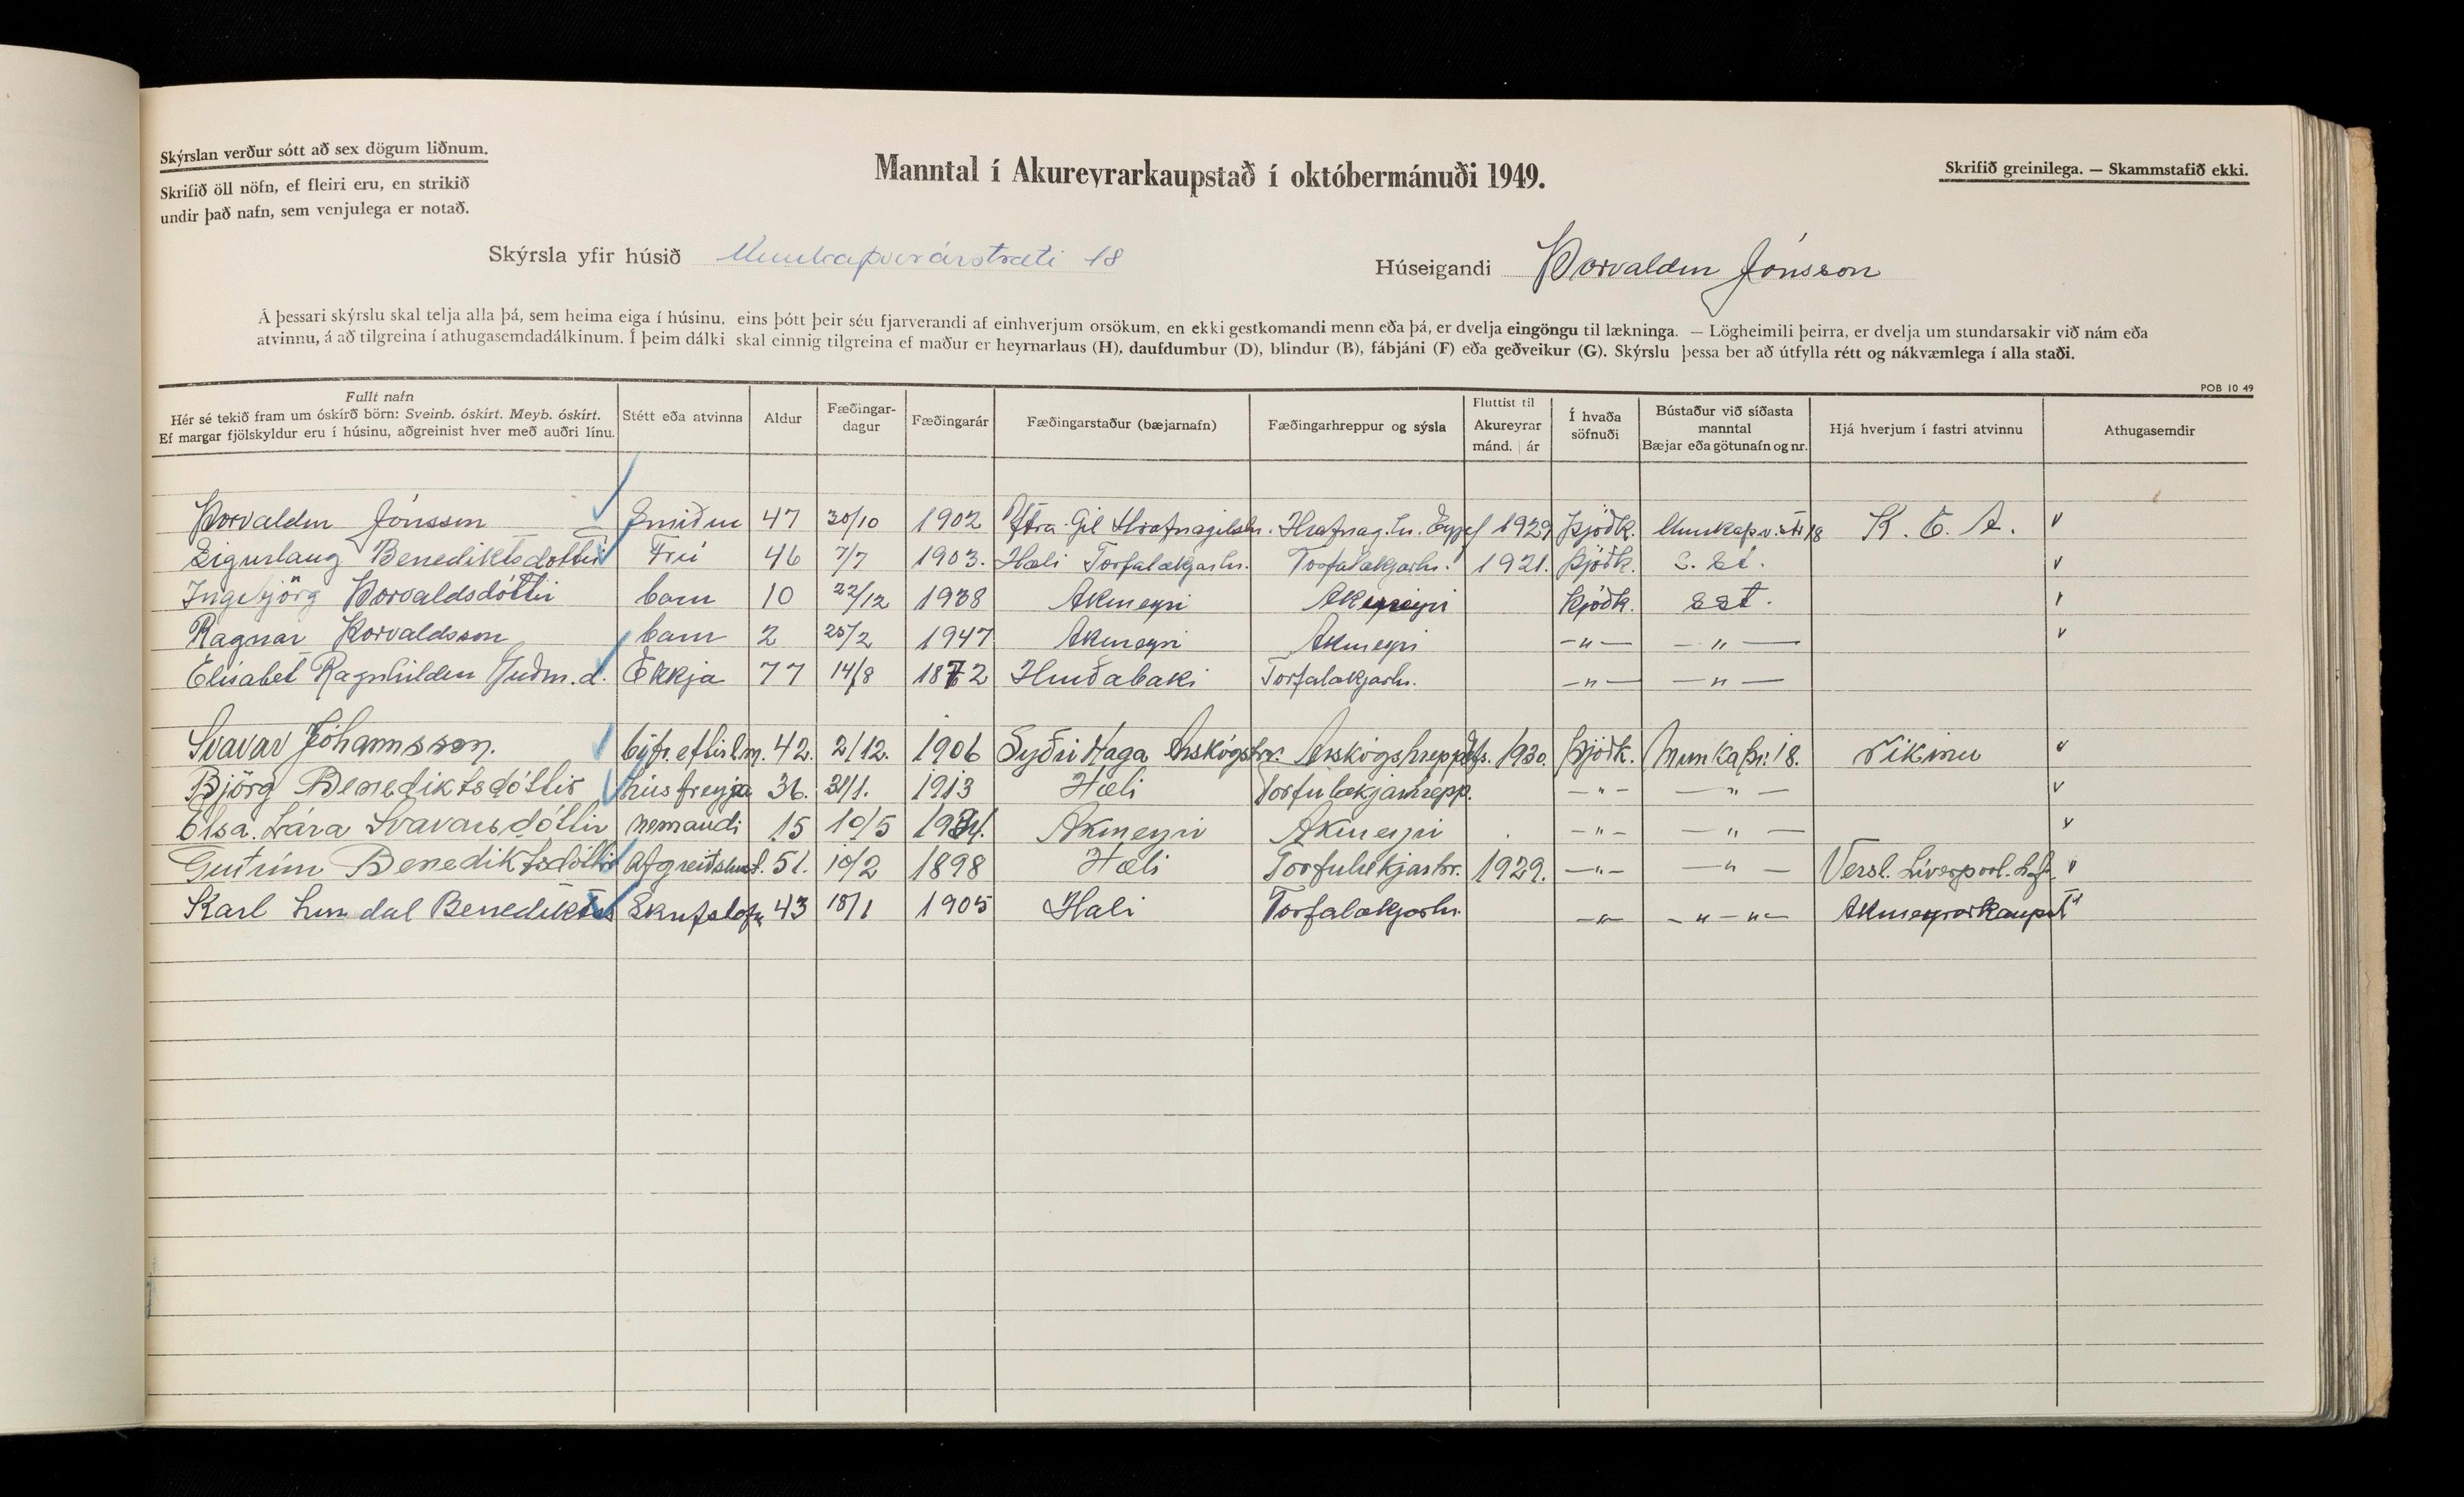 Skýrslan verður sótt að sex dögum liðnum.
Skrifið öll nöfn, ef fleiri eru, en strikið
undir það nafn, sem venjulega er notað.
Manntal í Akureyrarkaupstað í októbermánuði 1949.
Skrifið greinilega. — Skammstafið ekki.
Skýrsla yfir húsið Munkaþverárstræti 18
Húseigandi Þorvaldur Jónsson
Á þessari skýrslu skal telja alla þá, sem heima eiga í húsinu, eins þótt þeir séu fjarverandi af einhverjum orsökum, en ekki gestkomandi menn eða þá, er dvelja eingöngu til lækninga. — Lögheimili þeirra, er dvelja um stundarsakir við nám eða
atvinnu, á að tilgreina í athugasemdadálkinum. Í þeim dálki skal einnig tilgreina ef maður er heyrnarlaus (H), daufdumbur (D), blindur (B), fábjáni (F) eða geðveikur (G). Skýrslu þessa ber að útfylla rétt og nákvæmlega í alla staði.
POB 10 49
Fullt nafn
Hér sé tekið fram um óskírð börn: Sveinb. óskírt. Meyb. óskírt.
Ef margar fjölskyldur eru í húsinu, aðgreinist hver með auðri línu.
Stétt eða atvinna
Aldur
Fæðingar-
dagur
Fæðingarár
Fæðingarstaður (bæjarnafn)
Fæðingarhreppur og sýsla
Fluttist til
Akureyrar
mánd. | ár
Í hvaða
söfnuði
Bústaður við síðasta
manntal
Bæjar eða götunafn og nr.
Hjá hverjum í fastri atvinnu
Athugasemdir
Þorvaldur Jónsson Smiður 47 30/10 1902 Ytra-Gil Hrafnagilshr. Hrafnag.hr. Eyjf 1929 Þjóðk. Munkaþv.str 18 K. E. A. "
Sigurlaug Benediktsdóttir Frú 46 7/7 1903. Hæli Torfalækjarhr. Torfalækjarhr. 1921. Þjóðk. S. St. "
Ingibjörg Þorvaldsdóttir barn 10 22/12 1938 Akureyri Akureyri Þjóðk. S St.
Ragnar Þorvaldsson barn 2 25/2 1947 Akureyri Akureyri —"— —"— "
Elísabet Ragnhildur Guðm.d. Ekkja 77 14/8 1872 Hurðabaki Torfalækjarhr. —"— —"—
Svavar Jóhannsson. 42. 2/12. 1906 Syðri Haga Árskógshr. Árskógshrepp Efs. 1930. Þjóðk. Munkaþv. 18. Ríkinu "
Björg Benediktsdóttir húsfreyja 36. 31/1. 1913 Hæli Torfulækjarhrepp. —"— —"— "
Elsa Lára Svavarsdóttir nemandi 15 10/5 1934. Akureyri Akureyri —"— —"— "
Guðrún Benediktsdóttir afgreiðslust. 51. 10/2 1898 Hæli Torfulækjarhr. 1929. —"— —"— Versl. Liverpool. h.f. "
Karl Lundal Benediktss 43 18/1 1905 Hæli Torfalækjarhr. —"— —"—"— Akureyrarkaupst "